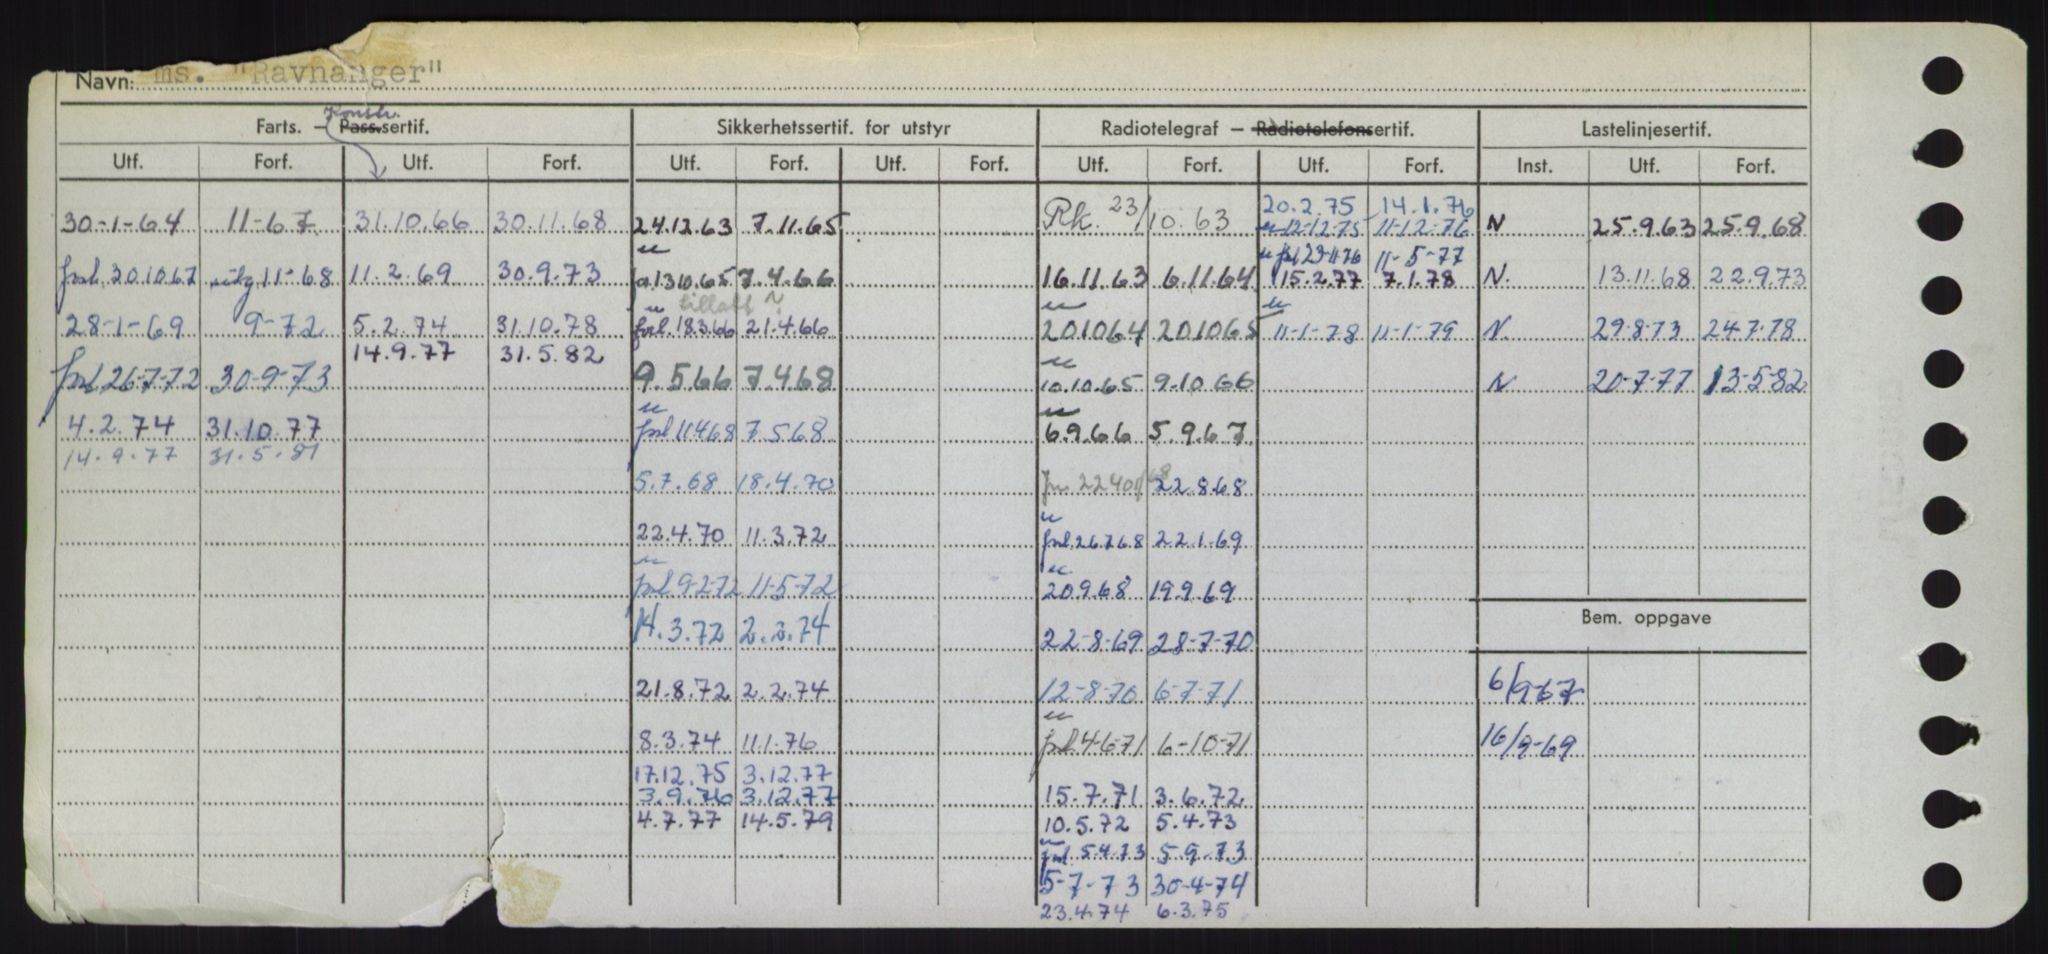 Navn: ms. "Ravnanger"
Konstr.
Farts. – Pass.sertif. Sikkerhetssertif. for utstyr Radiotelegraf – Radiotelefonsertif. Lastelinjesertif.
Utf. Forf. Utf. Forf. Utf. Forf. Utf. Forf. Utf. Forf. Utf. Forf. Inst. Utf. Forf.
20.2.75 14.1.76
30-1-64 11-67 31.10.66 30.11.68 24.12.63 7.11.65 Rk. 23/10.63 12-12-75 11-12-76 N 25.9.63 25.9.68
frl 23-11-76 11-5-77
forl. 20.10.67 11-68 11.2.69 30.9.73 13.10.65 7.4.66 16.11.63 6.11.64 15.2.77 7.1.78 N. 13.11.68 22.9.73
tillatt ~
28-1-69 9-72 5.2.74 31.10.78 forl. 18.3.66 21.4.66 20.10.64 20.10.65 11-1-78 11-1-79 N. 29-8-73 24-7-78
14.9.77 31.5.82
forl 26-7-72 30-9-73 9.5.66 7.4.68 10.10.65 9.10.66 N 20-7-77 13-5-82
4.2.74 31.10.77 forl 11.4.68 7.5.68 6.9.66 5.9.67
14.9.77 31.5.81
5.7.68 18.4.70 22.8.68
22.4.70 11.3.72 forl. 26.7.68 22.1.69
forl 9-2-72 11-5-72 20.9.68 19.9.69
Bem. oppgave
14.3.72 2.2.74 22-8-69 28-7-70
21.8.72 2.2.74 12-8-70 6-7-71 6/9-67
8.3.74 11.1.76 forl 4-6-71 6-10-71 16/9-69
17.12.75 3.12.77
3.9.76 3.12.77 15.7.71 3.6.72
4.7.77 14.5.79 10.5.72 5.4.73
forl 5.4.73 5-9-73
5-7-73 30-4-74
23.4.74 6.3.75